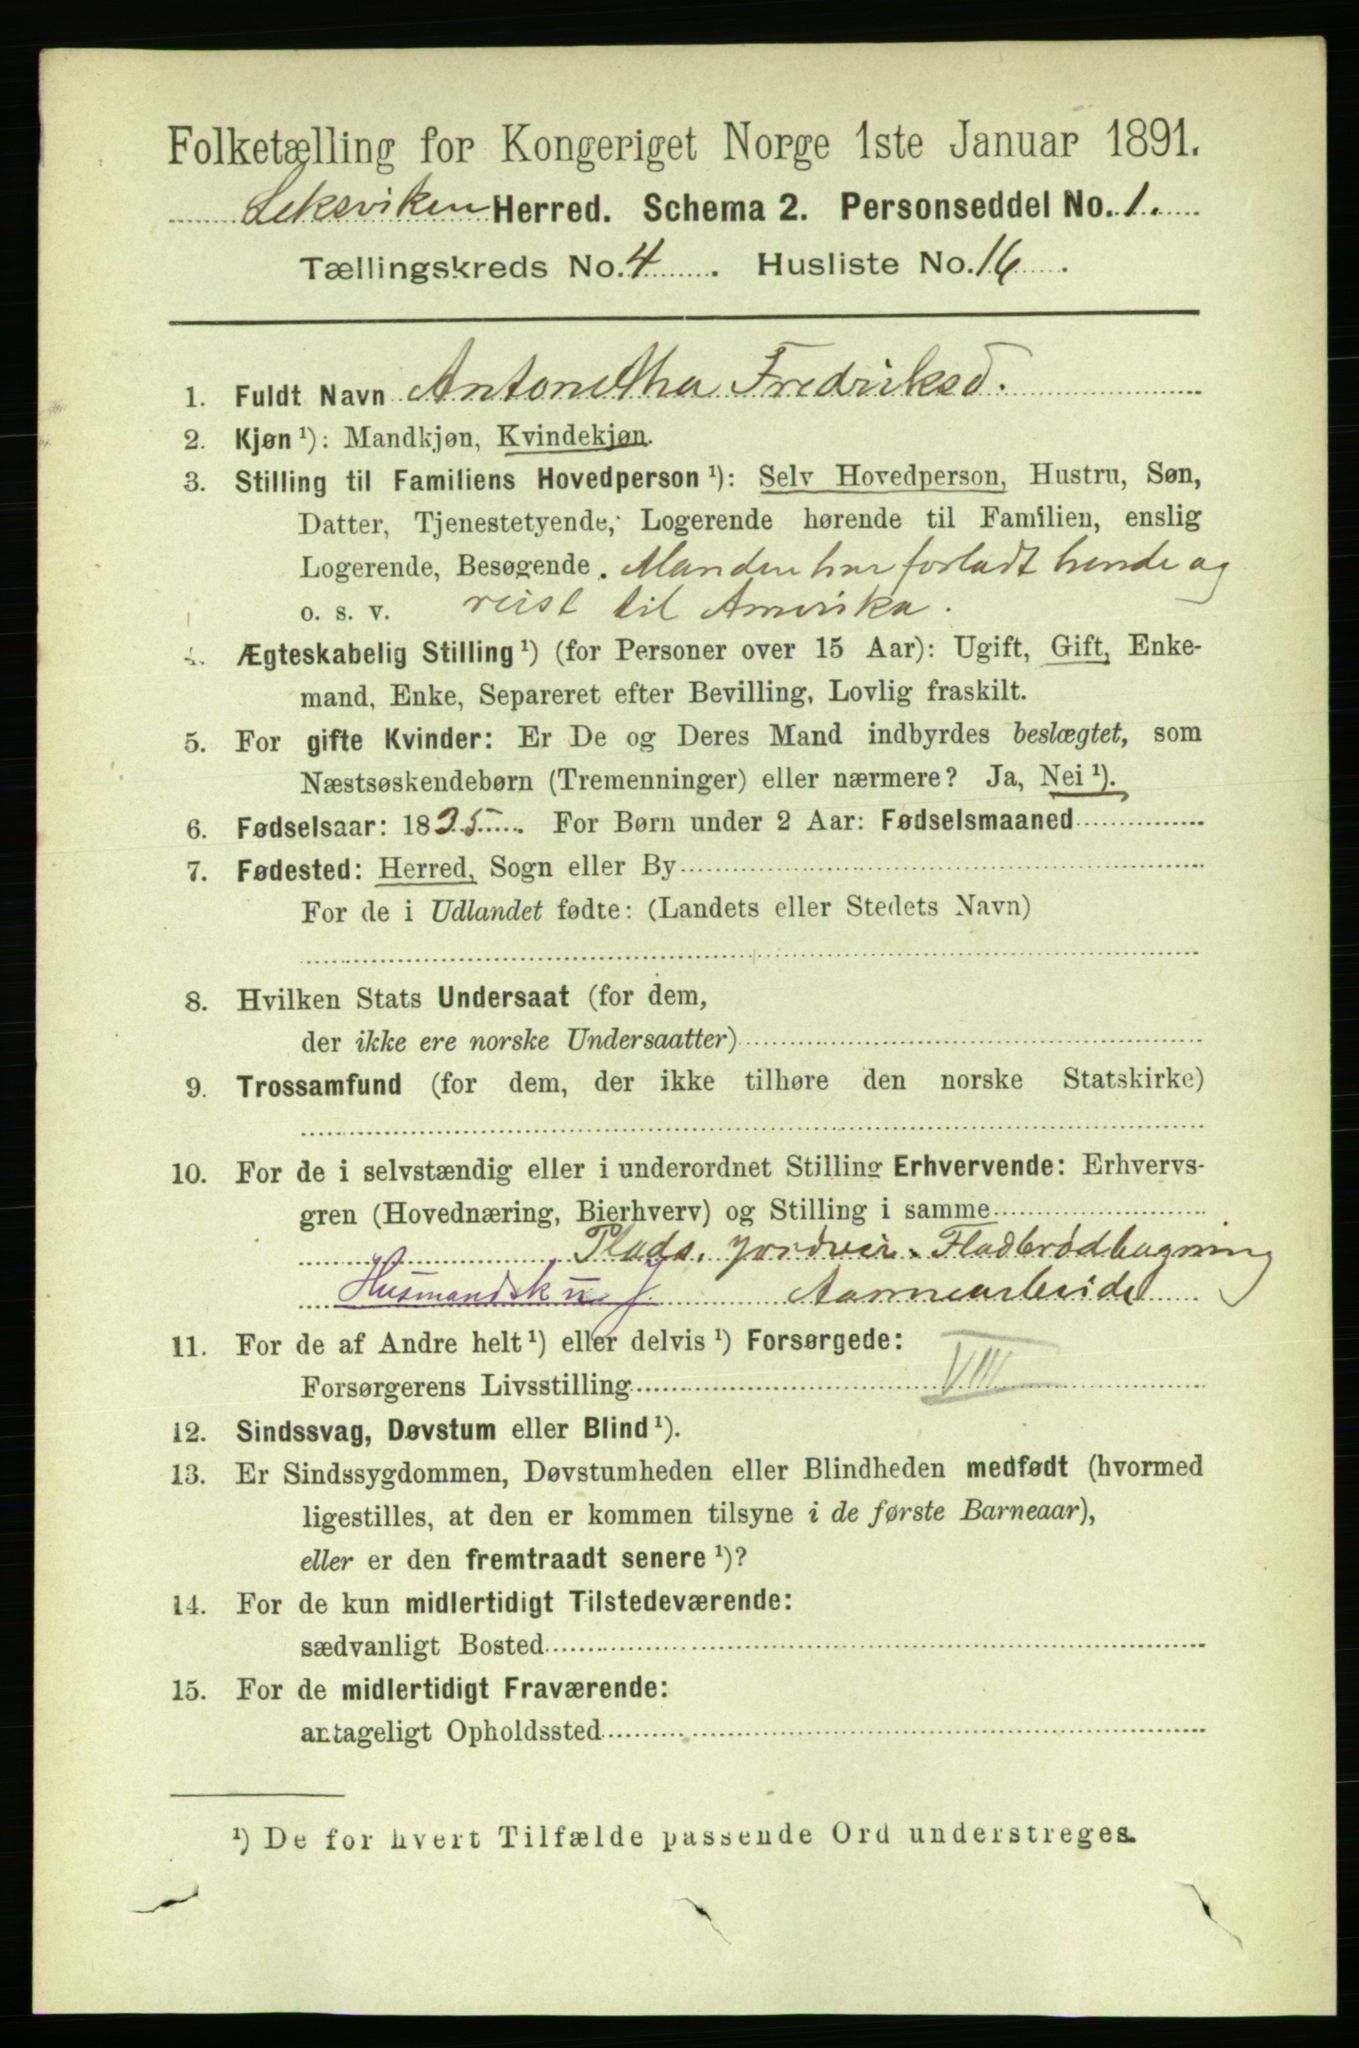 Folketælling for Kongeriget Norge 1ste Januar 1891.
Leksviken Herred. Schema 2. Personseddel No. 1.
Tællingskreds No. 4. Husliste No. 16.
1. Fuldt Navn Antonetha Fredriksd.
2. Kjøn ¹): Mandkjøn, Kvindekjøn.
3. Stilling til Familiens Hovedperson ¹): Selv Hovedperson, Hustru, Søn,
Datter, Tjenestetyende, Logerende hørende til Familien, enslig
Logerende, Besøgende. Manden har forladt hende og
o. s. v. reist til Amerika.
4. Ægteskabelig Stilling ¹) (for Personer over 15 Aar): Ugift, Gift, Enke-
mand, Enke, Separeret efter Bevilling, Lovlig fraskilt.
5. For gifte Kvinder: Er De og Deres Mand indbyrdes beslægtet, som
Næstsøskendebørn (Tremenninger) eller nærmere? Ja, Nei ¹).
6. Fødselsaar: 1835. For Børn under 2 Aar: Fødselsmaaned
7. Fødested: Herred, Sogn eller By
For de i Udlandet fødte: (Landets eller Stedets Navn)
8. Hvilken Stats Undersaat (for dem,
der ikke ere norske Undersaatter)
9. Trossamfund (for dem, der ikke tilhøre den norske Statskirke)
10. For de i selvstændig eller i underordnet Stilling Erhvervende: Erhvervs-
gren (Hovednæring, Bierhverv) og Stilling i samme
Plads. Jordvei. Fladbrødbagning
Husmandsk u J. Aannearbeide
11. For de af Andre helt ¹) eller delvis ¹) Forsørgede:
Forsørgerens Livsstilling VIII
12. Sindssvag, Døvstum eller Blind ¹).
13. Er Sindssygdommen, Døvstumheden eller Blindheden medfødt (hvormed
ligestilles, at den er kommen tilsyne i de første Barneaar),
eller er den fremtraadt senere ¹)?
14. For de kun midlertidigt Tilstedeværende:
sædvanligt Bosted
15. For de midlertidigt Fraværende:
antageligt Opholdssted
¹) De for hvert Tilfælde passende Ord understreges.